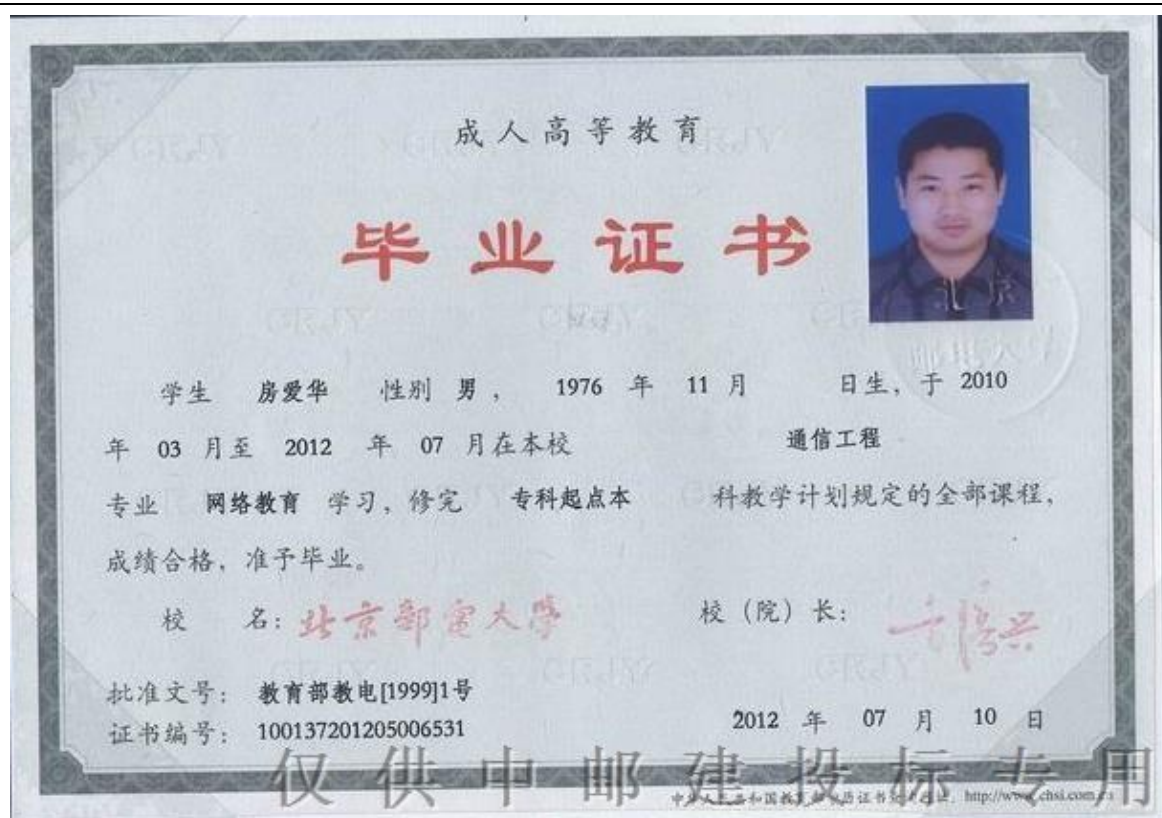 成人高等教育
毕业证书
学生 房爱华 性别 男, 1976 年 11 月 日生, 于 2010
年 03 月至 2012 年 07 月在本校 通信工程
专业 网络教育 学习, 修完 专科起点本 科教学计划规定的全部课程,
成绩合格, 准予毕业。
校 名: 北京邮电大学 校（院）长:
批准文号: 教育部教电[1999]1号
证书编号: 100137201205006531
2012 年 07 月 10 日
仅供中邮建投标专用
http://www.chsi.com.cn